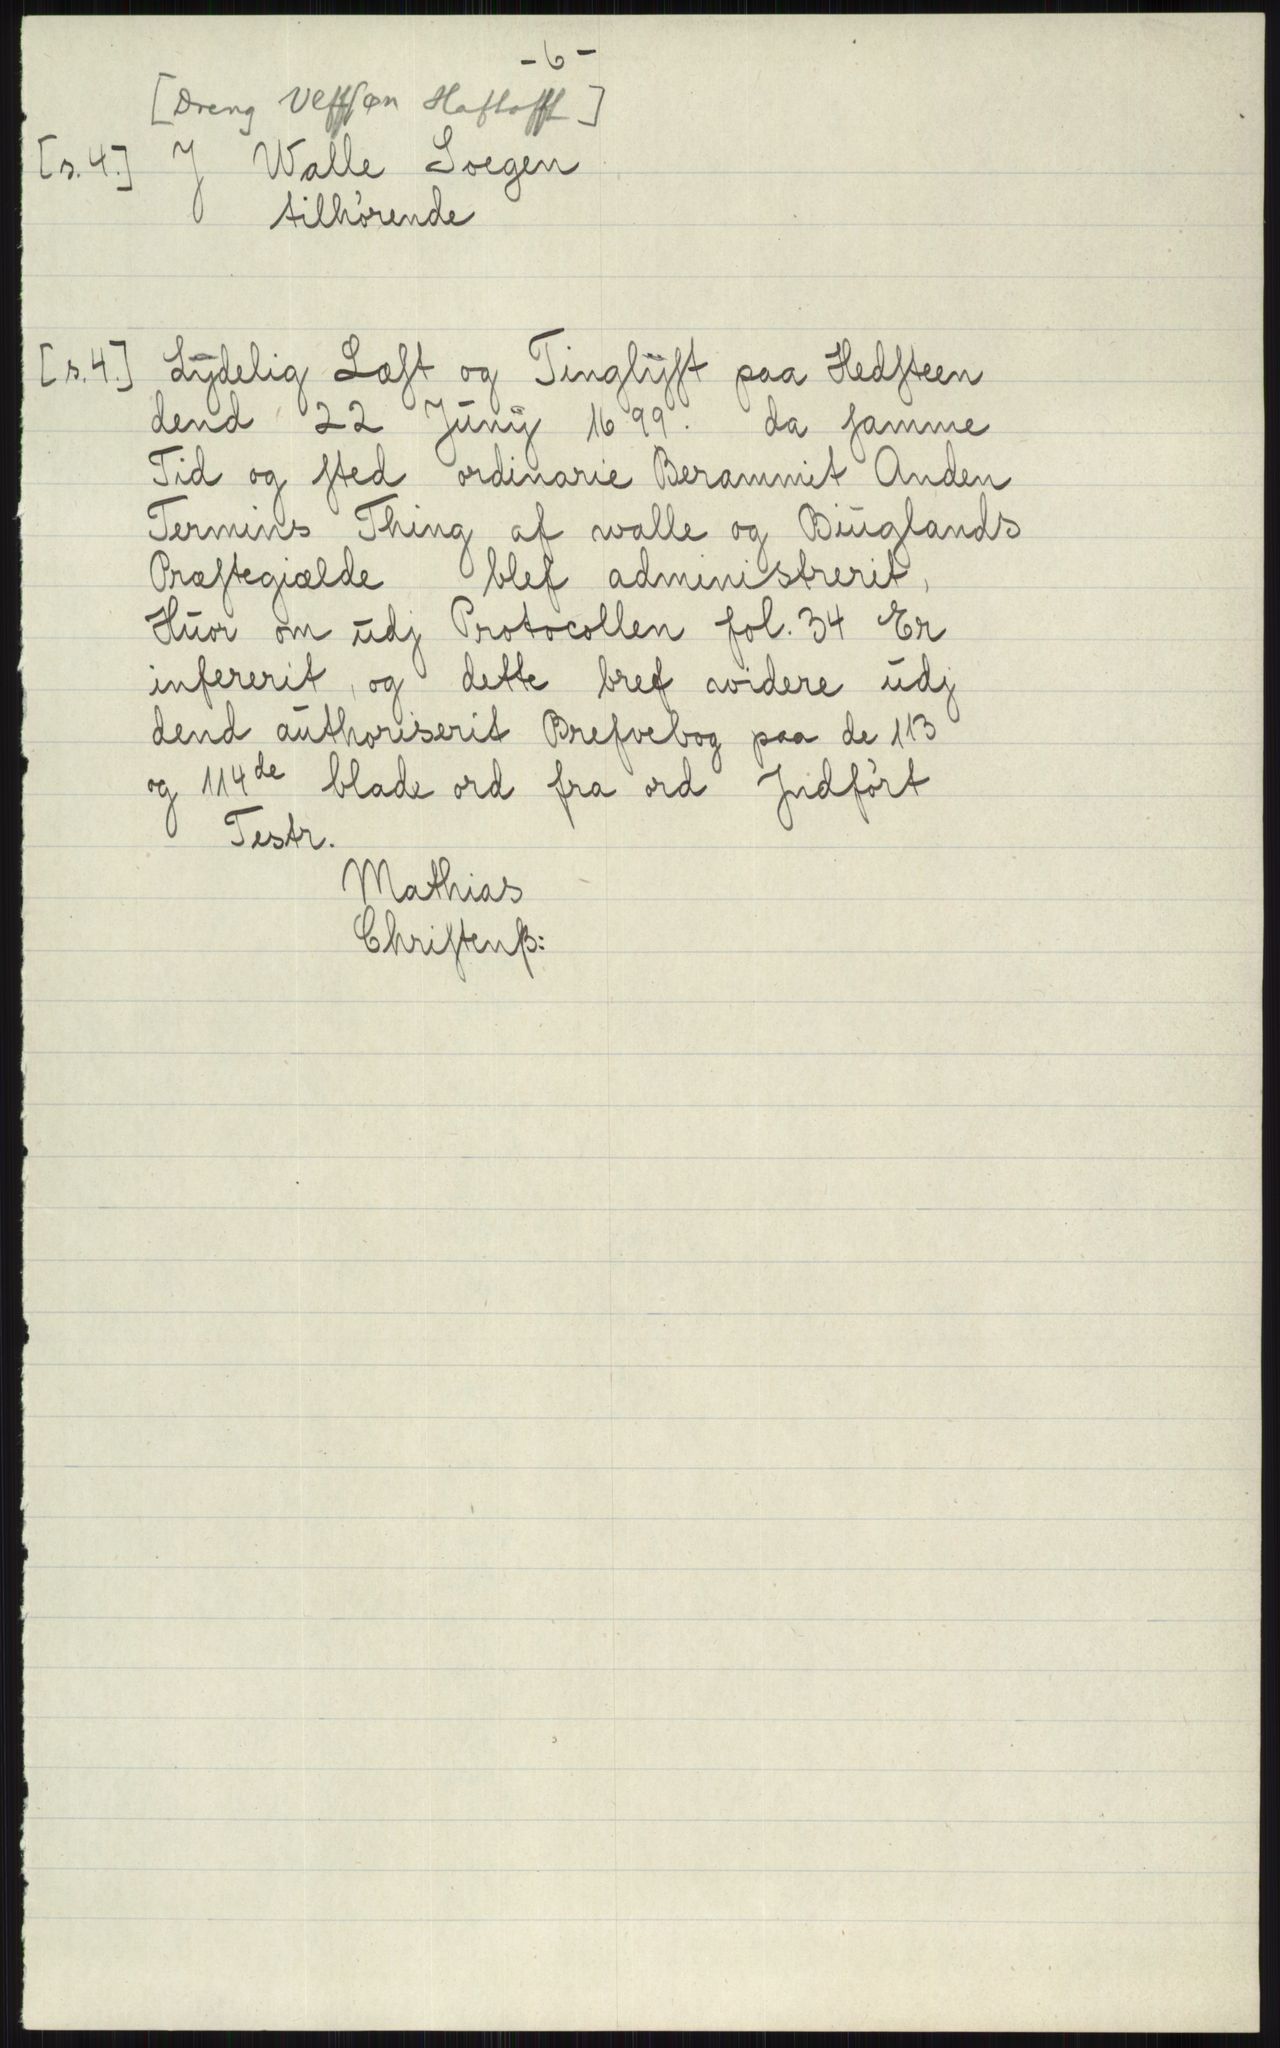 -6-
[Dreng Veffſøn Hoftoft]
[s.4.] J Walle Soegen
tilhörende
[s.4.] Lÿdelig Læſt og Tinglÿſt paa Hedſteen
dend 22 Junÿ 1699. da ſamme
Tid og ſted ordinarie Berammit Anden
Termins Thing af walle og Biuglands
Præſtegiælde blef administrerit,
Huor om udj Protocollen fol. 34 Er
inſererit, og dette bref widere udj
dend authoriserit Brefvebog paa de 113
og 114de blade ord fra ord Jndfört
Testr.
Mathias
Chriſtenſß: